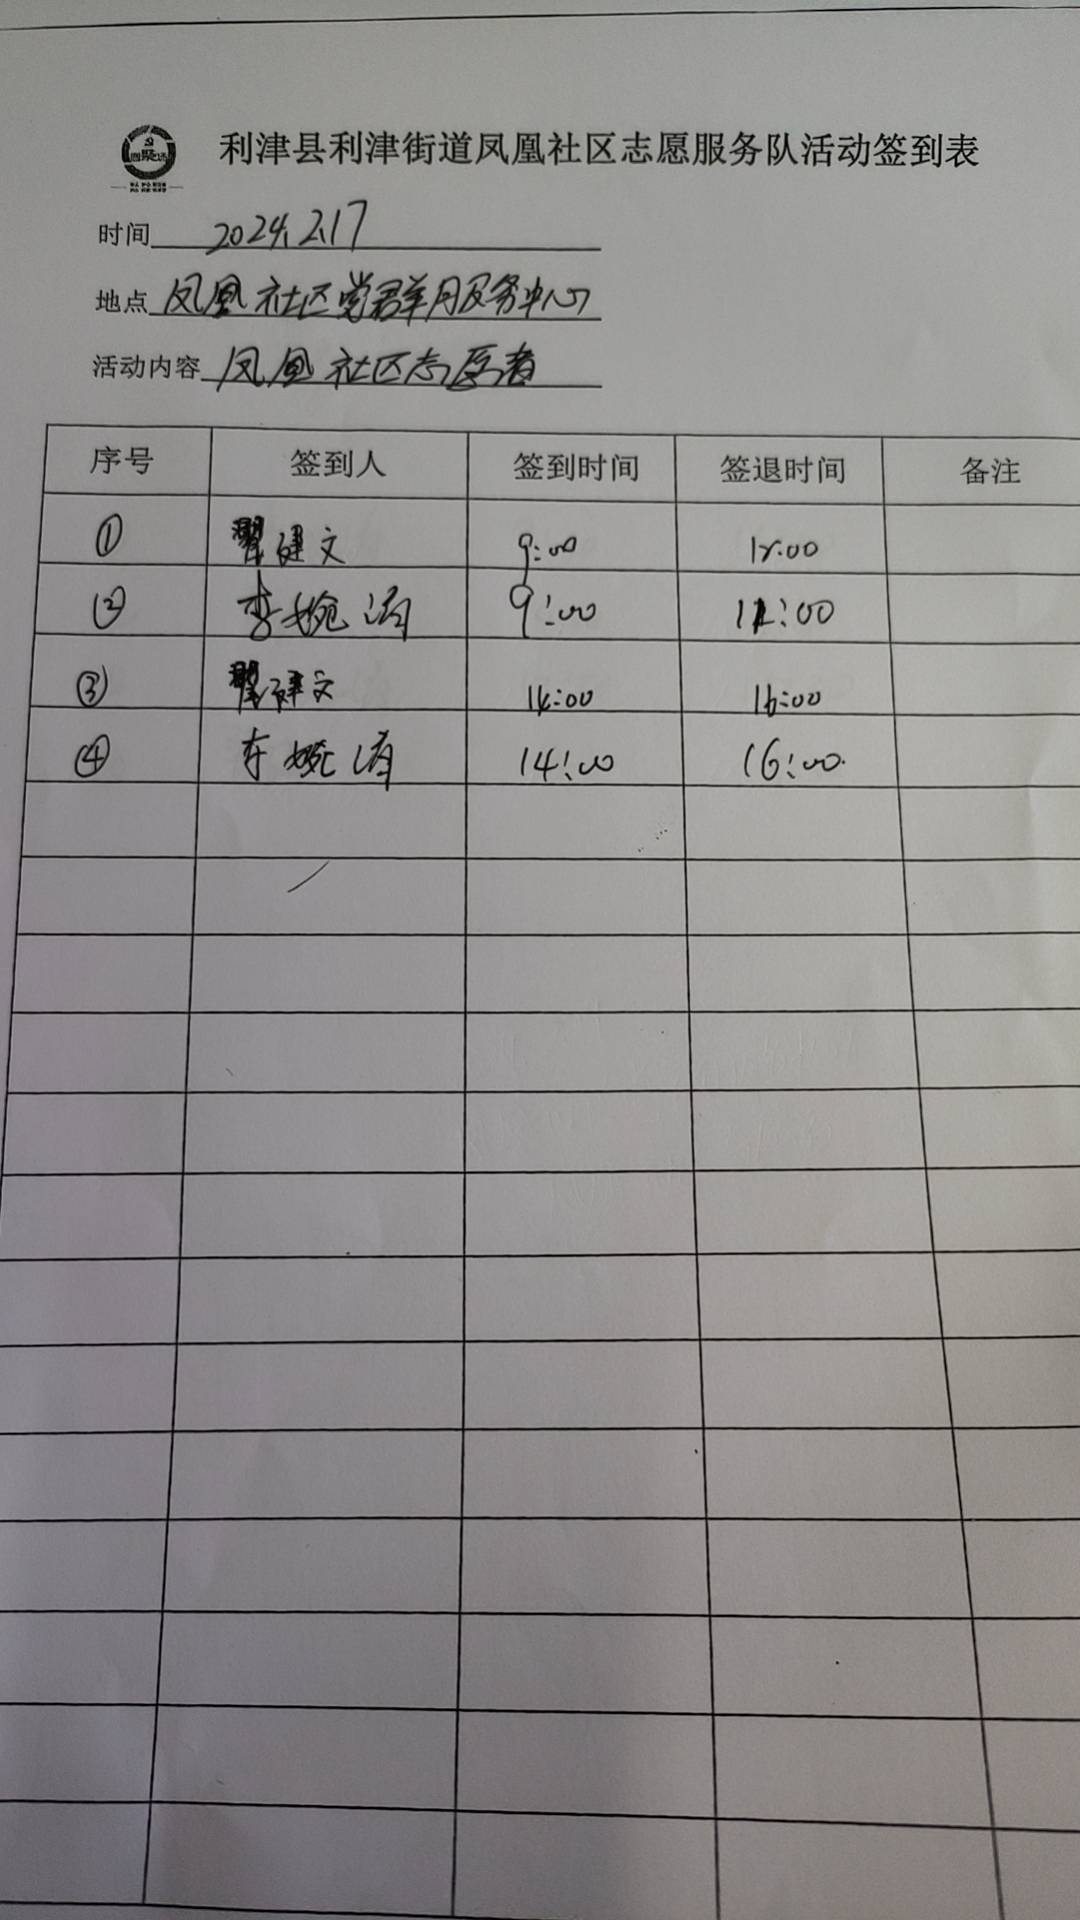 利津县利津街道凤凰社区志愿服务队活动签到表
时间 2024.2.17
地点 凤凰社区党群服务中心
活动内容 凤凰社区志愿者
序号 签到人 签到时间 签退时间 备注
① 翟建文 9:00 12:00
② 李婉 9:00 12:00
③ 翟建文 14:00 16:00
④ 李婉 14:00 16:00